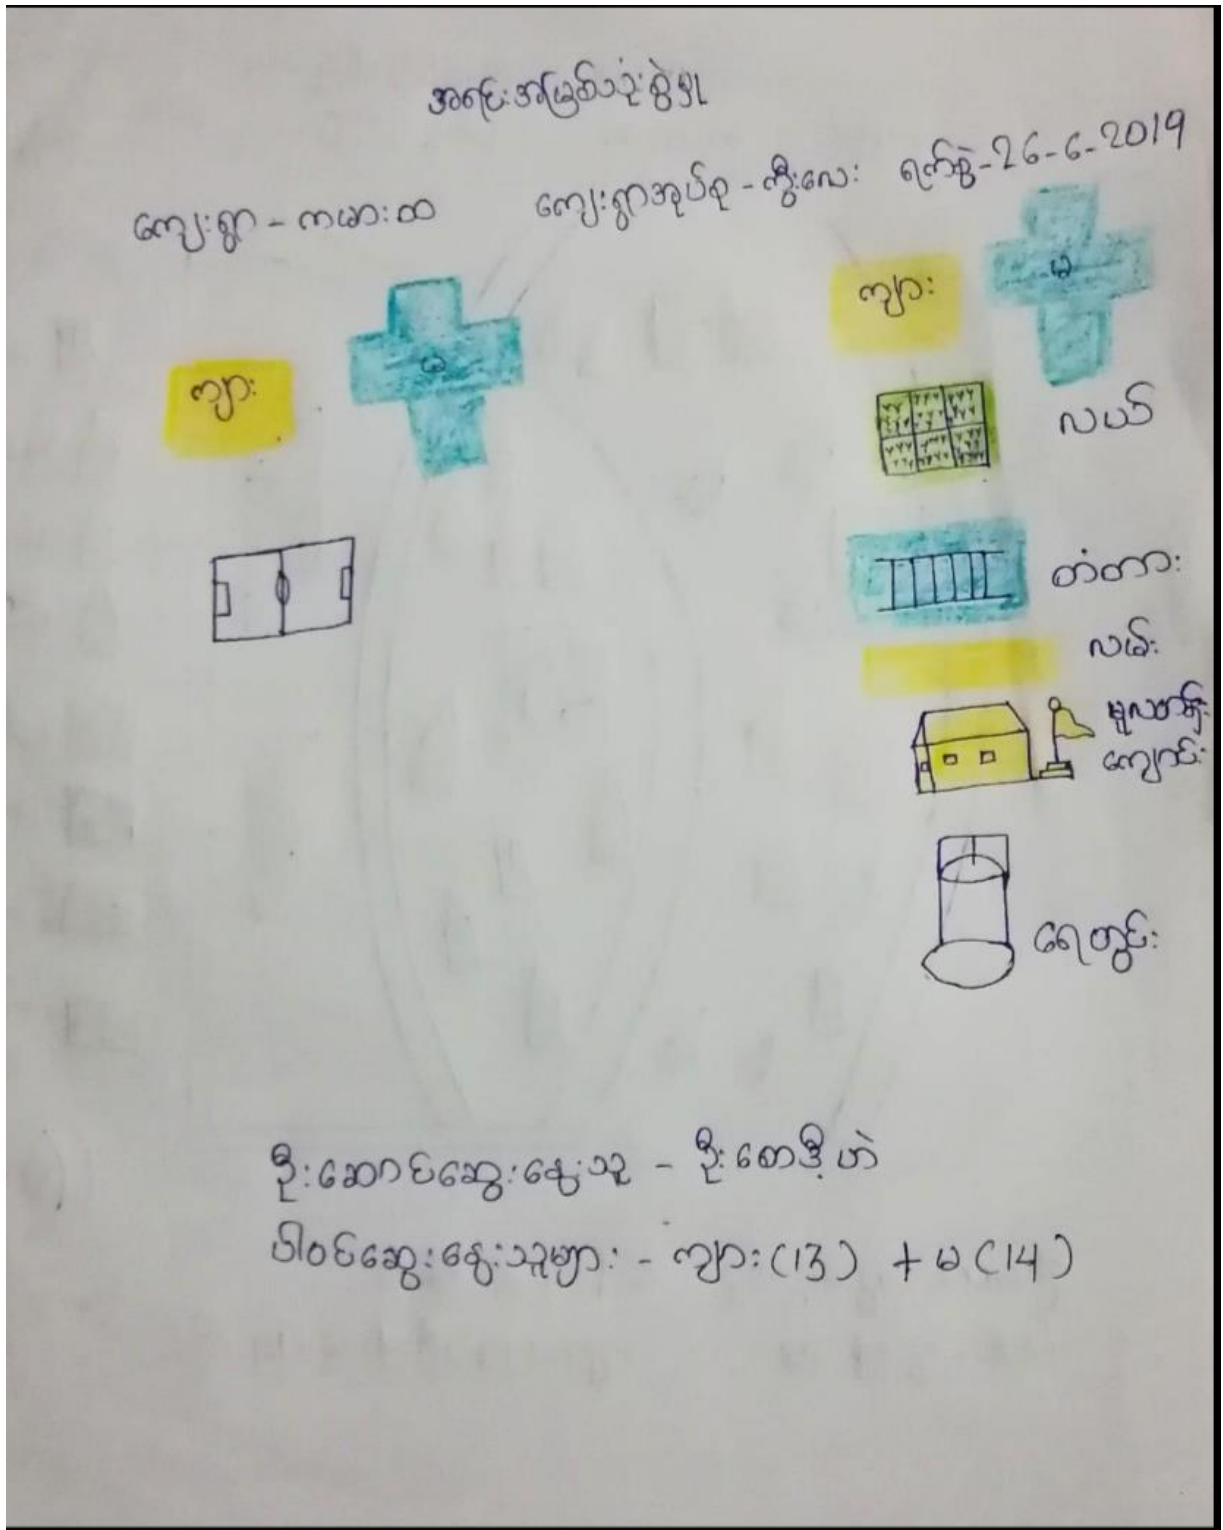 အရင်းအမြစ်သုံးစွဲမှု
ကျေးရွာ - ကမားထ ကျေးရွာအုပ်စု - ကွီးလေး ရက်စွဲ - 26-6-2019
ကျား မ
ကျား မ
လယ်
တံတား
လမ်း
မူလတန်း
ကျောင်း
ရေတွင်း
ဦးဆောင်ဆွေးနွေးသူ - ဦးစောဒို့ဟဲ
ပါဝင်ဆွေးနွေးသူများ - ကျား (13) + မ (14)